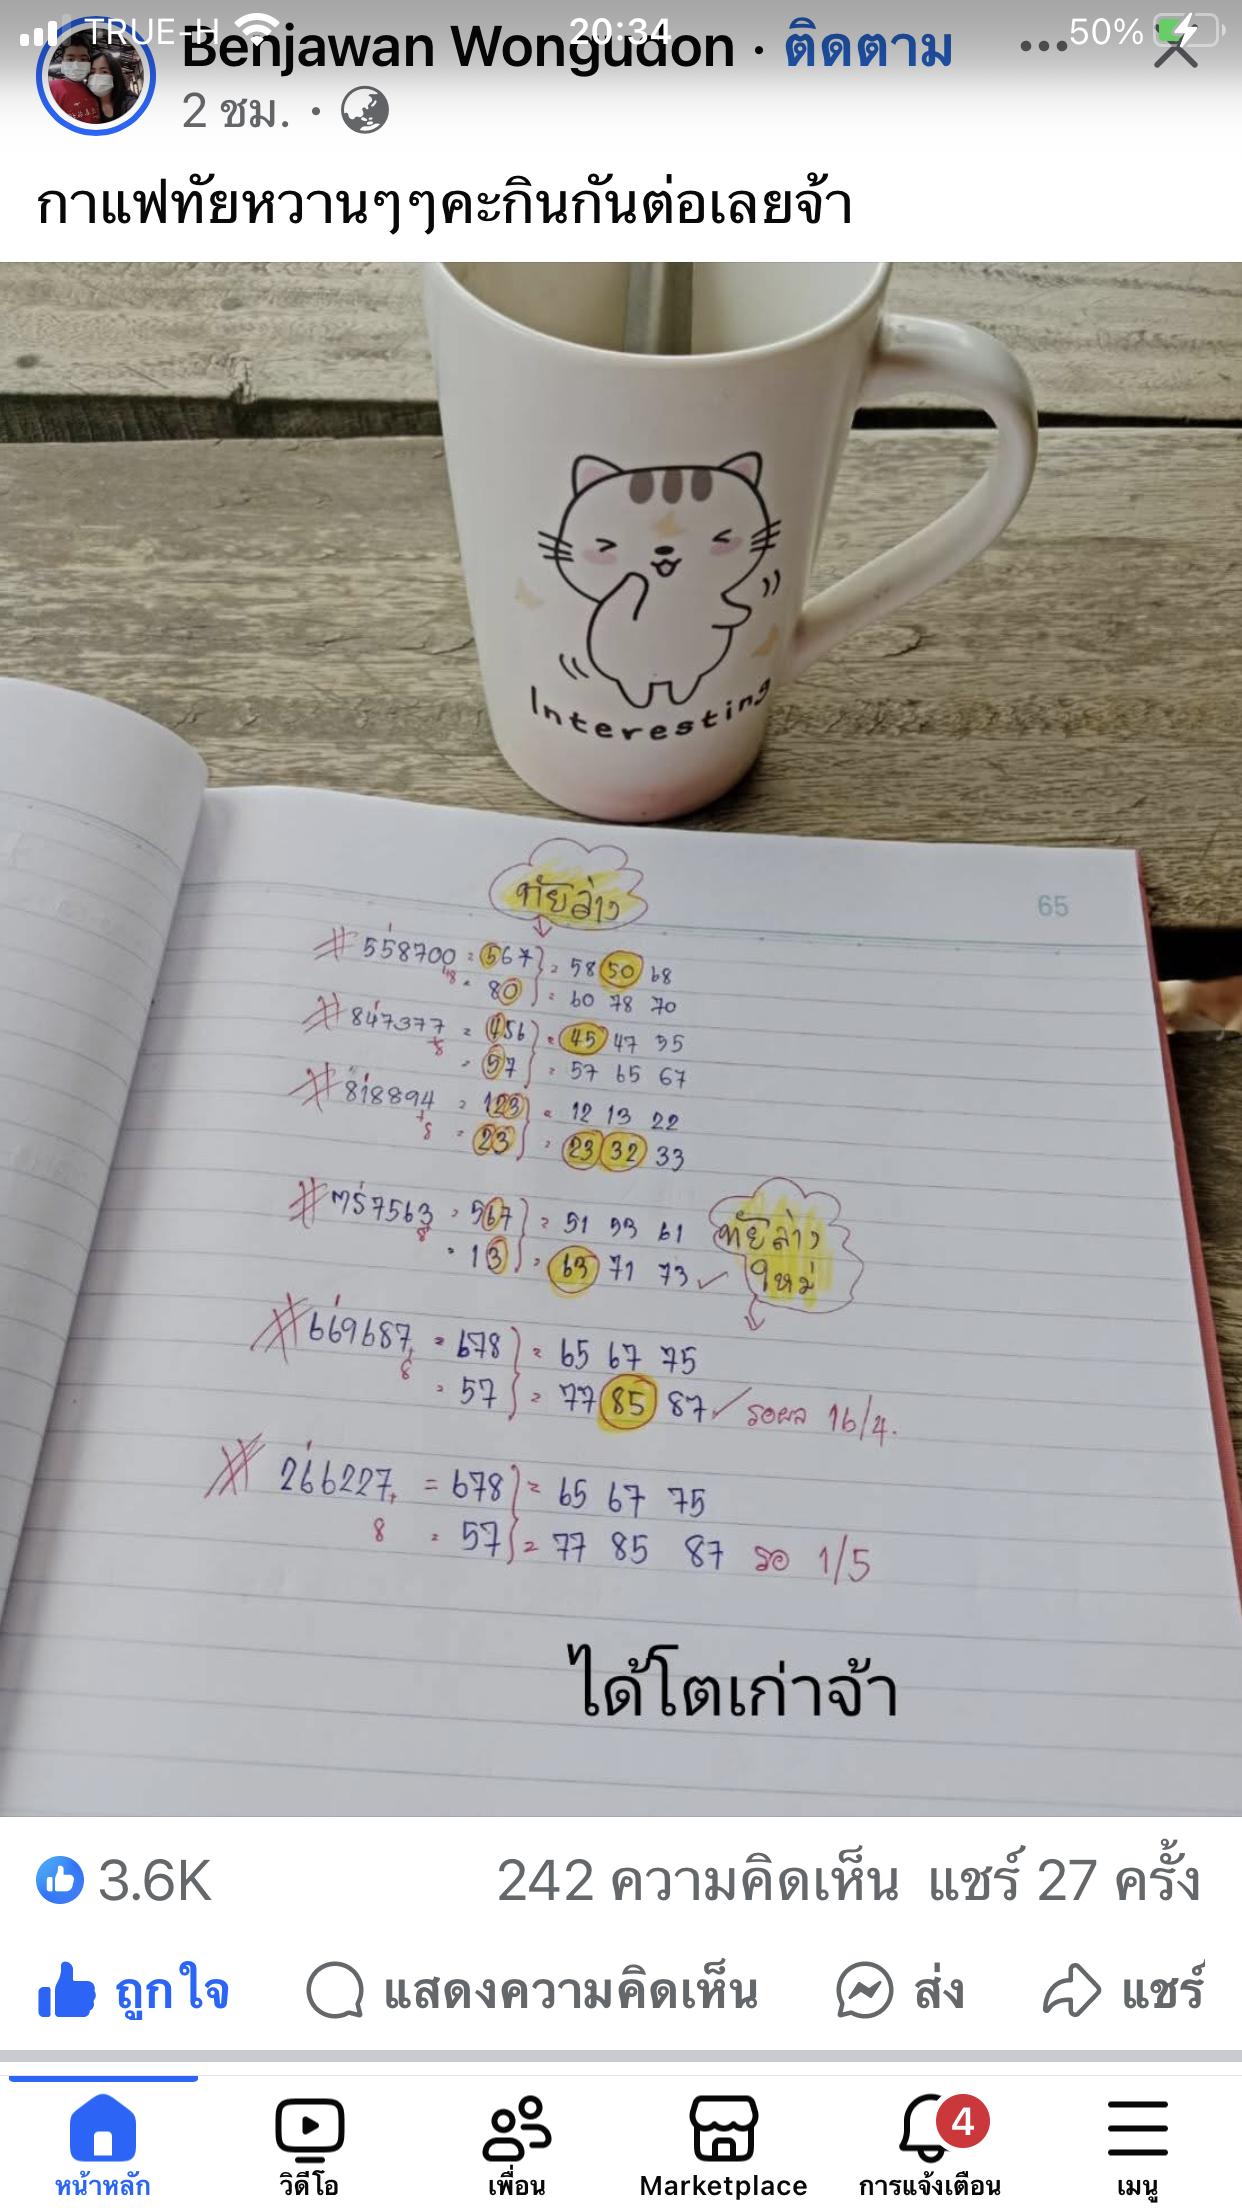 TRUE-H 20:34 50%
Benjawan Wongudon · ติดตาม
2 ชม. ·
กาแฟทัยหวานๆๆคะกินกันต่อเลยจ้า
Interesting
65
ทัยล่าง
558700 = 567 } = 58 50 68
+8 = 80 } = 60 78 70
847377 = 456 } = 45 47 55
+8 = 57 } = 57 65 67
818894 = 123 } = 12 13 22
+8 = 23 } = 23 32 33
757563 = 567 } = 51 53 61
8 = 13 } = 63 71 73 ✓
ทัยล่าง
ใหม่
669687 = 678 } = 65 67 75
+8 = 57 } = 77 85 87 ✓ รอผล 16/4.
266227 = 678 } = 65 67 75
+8 = 57 } = 77 85 87 รอ 1/5
ได้โตเก่าจ้า
3.6K 242 ความคิดเห็น แชร์ 27 ครั้ง
ถูกใจ แสดงความคิดเห็น ส่ง แชร์
4
หน้าหลัก วิดีโอ เพื่อน Marketplace การแจ้งเตือน เมนู